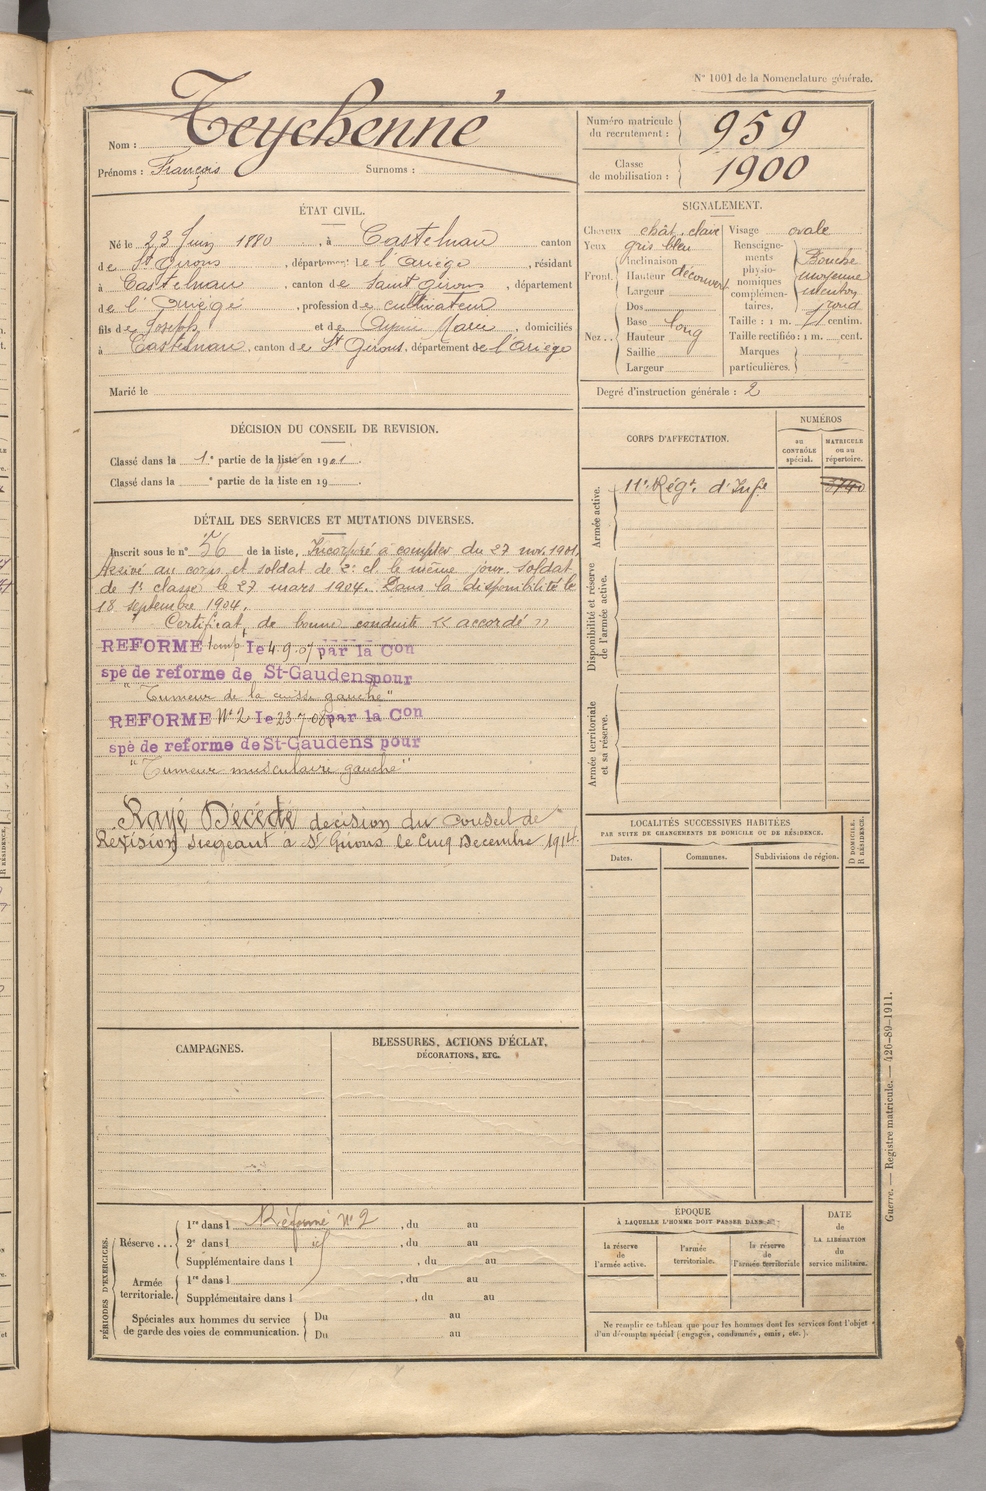 N° 1001 de la Nomenclature générale.
Nom : Teychenné
Prénoms : François Surnoms :
Numéro matricule du recrutement : 959
Classe de mobilisation : 1900
ÉTAT CIVIL.
Né le 23 Juin 1880, à Castelnau canton
de St Girons, département de l'Ariège, résidant
à Castelnau, canton de Saint Girons, département
de l'Ariège, profession de cultivateur
fils de Joseph et de Marie, domiciliés
à Castelnau, canton de St Girons, département de l'Ariège
Marié le
SIGNALEMENT.
Cheveux chât. clair Visage ovale
Yeux gris bleu Renseigne-
ments
physio-
nomiques
complémen-
taires, Bouche
moyenne
menton
rond
Front. Inclinaison
Hauteur découvert
Largeur
Nez.. Dos
Base long
Hauteur
Saillie
Largeur
Taille : 1 m. 71 centim.
Taille rectifiée : 1 m. cent.
Marques
particulières.
Degré d'instruction générale : 2
DÉCISION DU CONSEIL DE REVISION.
Classé dans la 1e partie de la liste en 1901.
Classé dans la e partie de la liste en 19
DÉTAIL DES SERVICES ET MUTATIONS DIVERSES.
Inscrit sous le n° 56 de la liste, Incorporé à compter du 27 nov. 1901.
Arrivé au corps et soldat de 2e cl. le même jour. Soldat
de 1e classe le 27 mars 1904. Dans la disponibilité le
18 septembre 1904.
Certificat de bonne conduite « accordé »
REFORME temp le 4.9.07 par la Con
spé de reforme de St-Gaudens pour
"Tumeur de la cuisse gauche"
REFORME N° 2 le 23.7.08 par la Con
spé de reforme de St-Gaudens pour
"Tumeur musculaire gauche"
Rayé Décédé décision du conseil de
Révision siégeant à St Girons le Cinq Décembre 1914.
CORPS D'AFFECTATION.
NUMÉROS
au
CONTRÔLE
spécial.
MATRICULE
ou au
répertoire.
Armée active.
11e Régt. d'Infie
Disponibilité et réserve
de l'armée active.
Armée territoriale
et sa réserve.
LOCALITÉS SUCCESSIVES HABITÉES
PAR SUITE DE CHANGEMENTS DE DOMICILE OU DE RÉSIDENCE.
Dates. Communes. Subdivisions de région.
D DOMICILE.
R RÉSIDENCE.
CAMPAGNES.
BLESSURES, ACTIONS D'ÉCLAT,
DÉCORATIONS, ETC.
PÉRIODES D'EXERCICES.
Réserve... 1re dans l Réformé N° 2, du au
2e dans l id, du au
Supplémentaire dans l, du au
Armée
territoriale. 1re dans l, du au
Supplémentaire dans l, du au
Spéciales aux hommes du service
de garde des voies de communication. Du au
Du au
ÉPOQUE
À LAQUELLE L'HOMME DOIT PASSER DANS
la réserve
de
l'armée active.
l'armée
territoriale.
la réserve
de
l'armée territoriale
DATE
de
LA LIBÉRATION
du
service militaire.
Ne remplir ce tableau que pour les hommes dont les services font l'objet
d'un décompte spécial (engagés, condamnés, omis, etc.).
Guerre. — Registre matricule. — 426-89-1911.